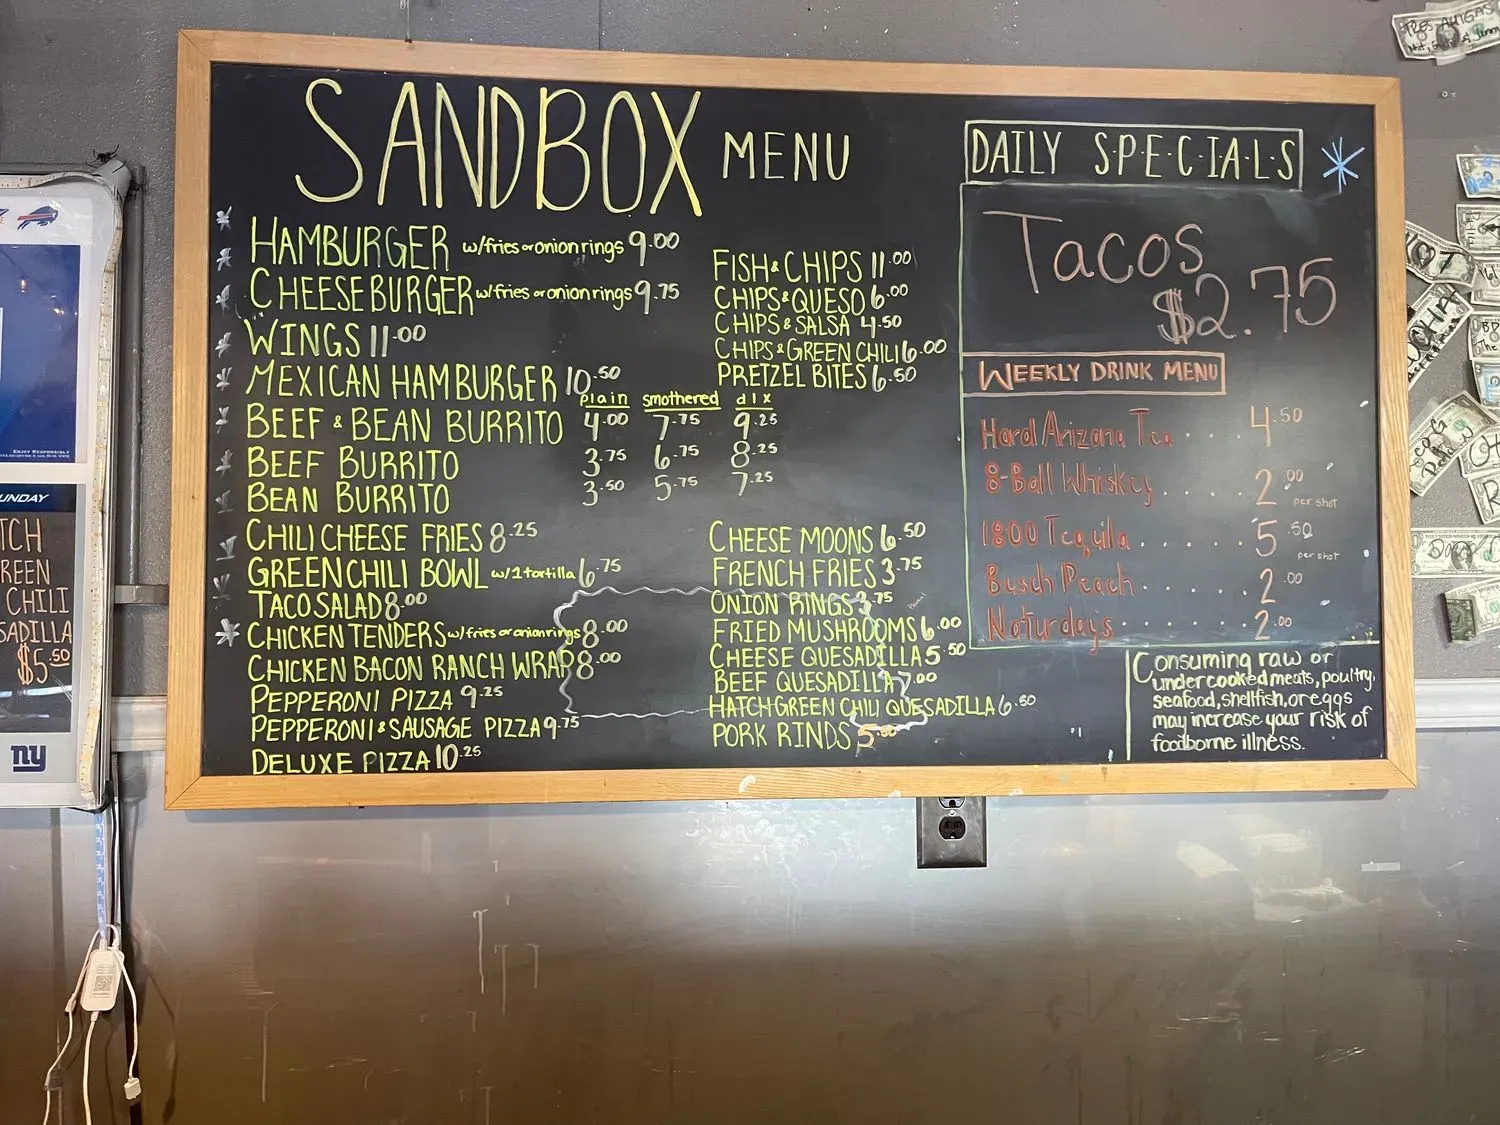 SANDBOX MENU
HAMBURGER w/fries or onion rings 9.00
CHEESEBURGER w/fries or onion rings 9.75
WINGS 11.00
MEXICAN HAMBURGER 10.50
plain smothered dlx
BEEF & BEAN BURRITO 4.00 7.75 9.25
BEEF BURRITO 3.75 6.75 8.25
BEAN BURRITO 3.50 5.75 7.25
CHILI CHEESE FRIES 8.25
GREEN CHILI BOWL w/1 tortilla 6.75
TACO SALAD 8.00
CHICKEN TENDERS w/fries or onion rings 8.00
CHICKEN BACON RANCH WRAP 8.00
PEPPERONI PIZZA 9.25
PEPPERONI & SAUSAGE PIZZA 9.75
DELUXE PIZZA 10.25
FISH & CHIPS 11.00
CHIPS & QUESO 6.00
CHIPS & SALSA 4.50
CHIPS & GREEN CHILI 6.00
PRETZEL BITES 6.50
CHEESE MOONS 6.50
FRENCH FRIES 3.75
ONION RINGS 3.75
FRIED MUSHROOMS 6.00
CHEESE QUESADILLA 5.50
BEEF QUESADILLA 7.00
HATCH GREEN CHILI QUESADILLA 6.50
PORK RINDS 5.00
DAILY S·P·E·C·I·A·L·S
Tacos
$2.75
WEEKLY DRINK MENU
Hard Arizona Tea . . . . 4.50
8-Ball Whiskey . . . . . 2.00
per shot
1800 Tequila . . . . . . 5.50
per shot
Busch Peach . . . . . . 2.00
Naturdays . . . . . . . 2.00
Consuming raw or
undercooked meats, poultry,
seafood, shellfish, or eggs
may increase your risk of
foodborne illness.
ENJOY RESPONSIBLY
UNDAY
TCH
REEN
CHILI
SADILLA
$5.50
ny
TRES AMIGAS